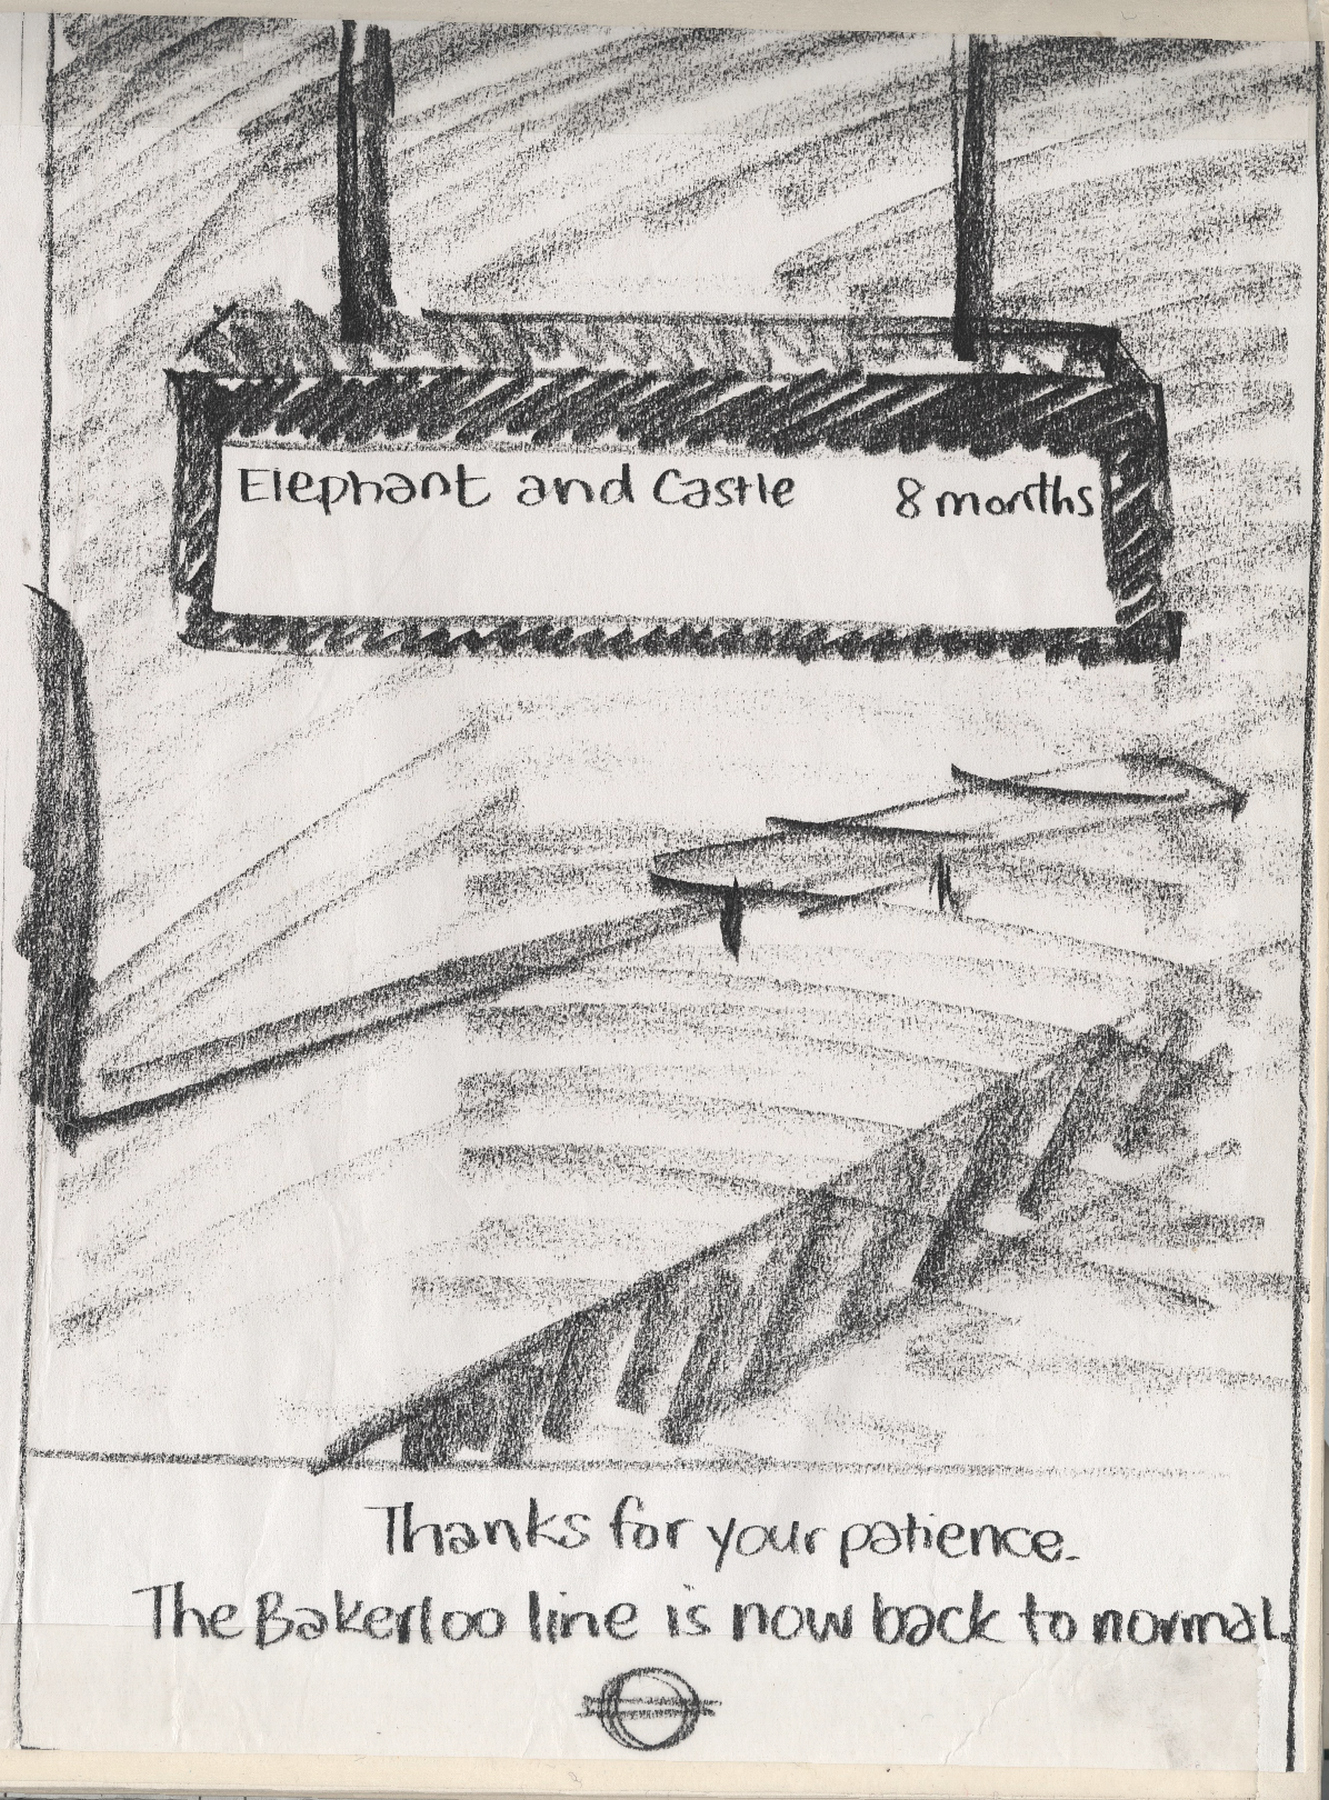 Elephant and Castle 8 months
Thanks for your patience.
The Bakerloo line is now back to normal.